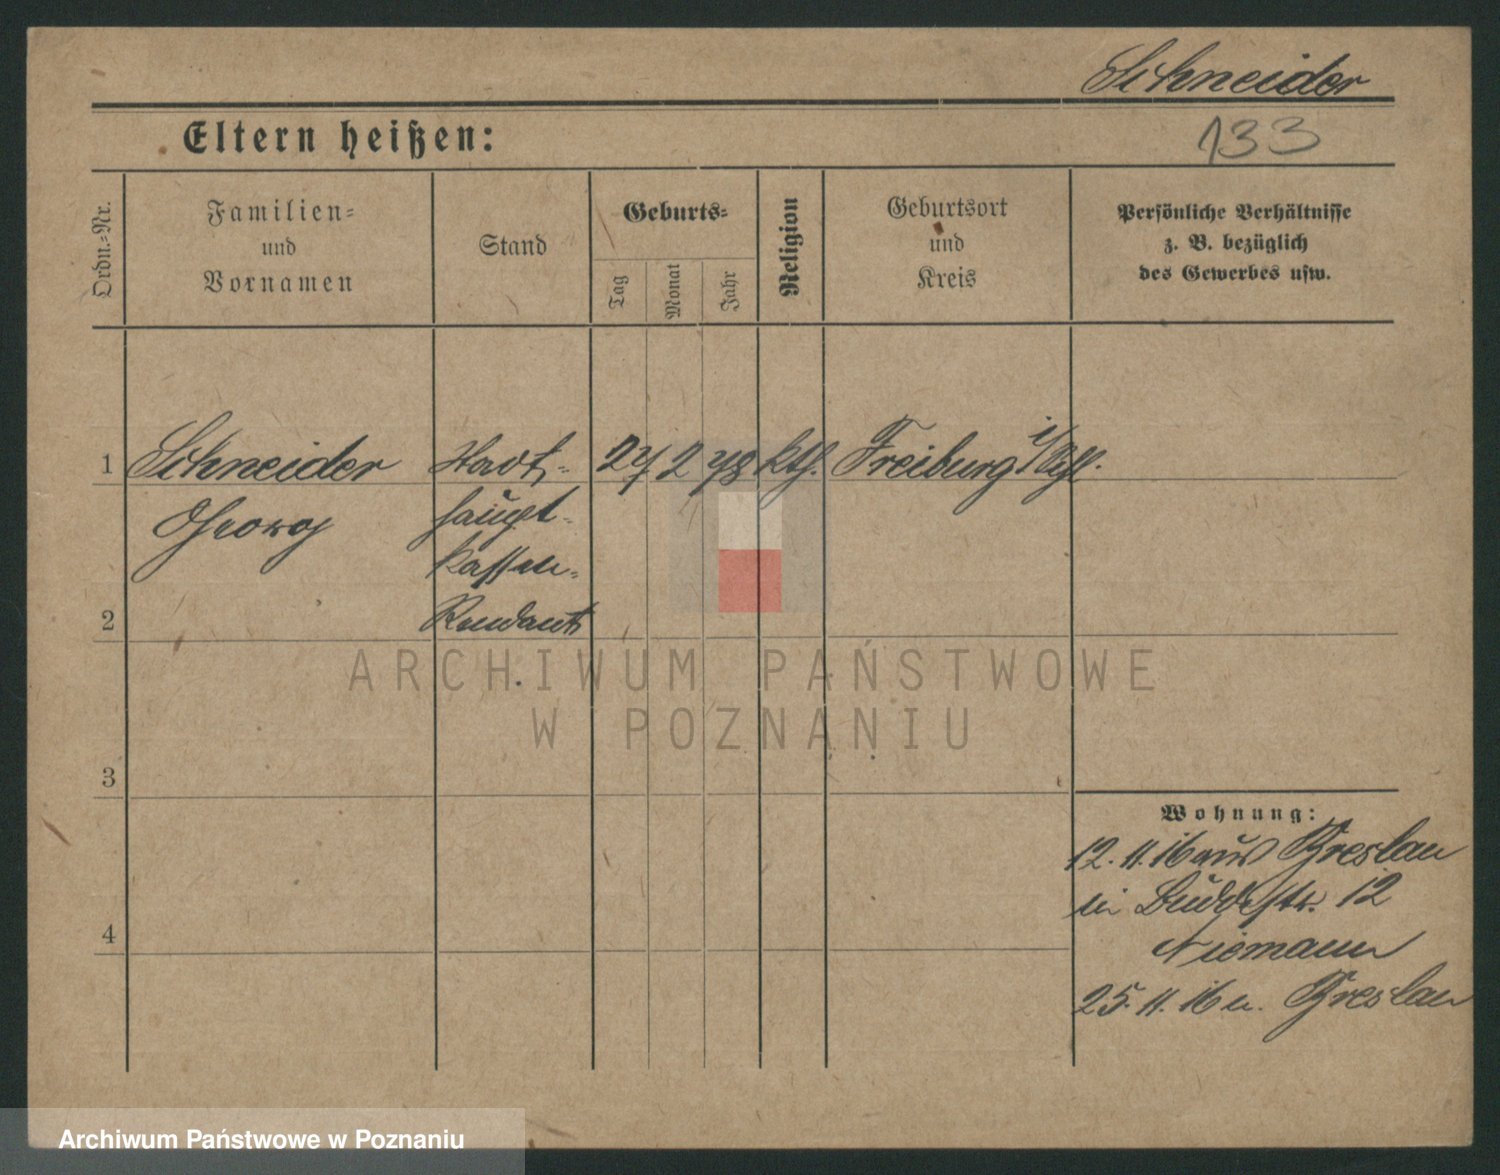 Schneider
Eltern heißen:
133
Ordn.=Nr.
Familien=
und
Vornamen
Stand
Geburts=
Tag
Monat
Jahr
Religion
Geburtsort
und
Kreis
Persönliche Verhältnisse
z. B. bezüglich
des Gewerbes usw.
1 Schneider Stadt= 27 2 78 kth. Freiburg i/Schl.
Georg haupt=
kassen=
2 Rendant
ARCHIWUM PAŃSTWOWE
W POZNANIU
3
Wohnung:
12. 11. 16 aus Breslau
in Buddestr. 12
4
Niemann
25. 11. 16 n. Breslau
Archiwum Państwowe w Poznaniu